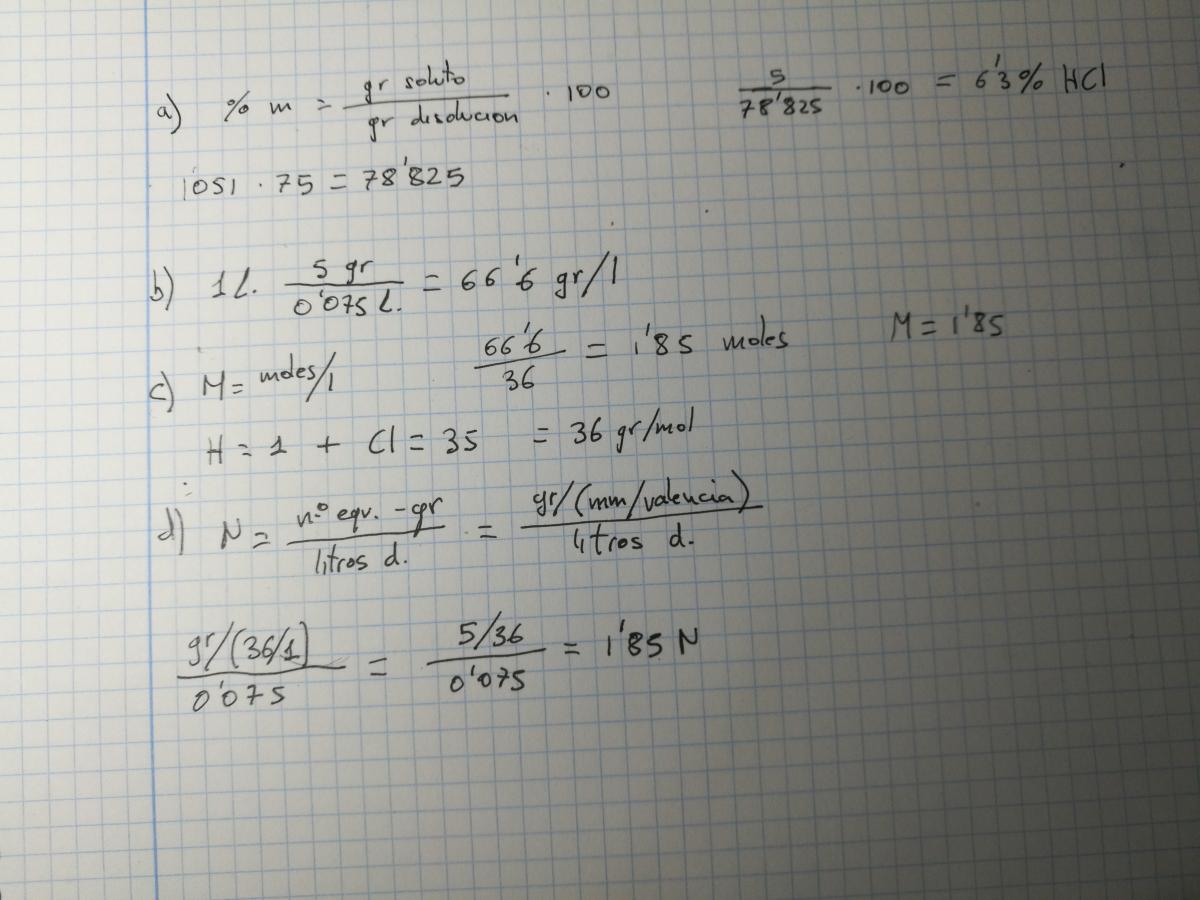 a) % m = gr soluto / gr disolucion · 100    5 / 78'825 · 100 = 6'3% HCl
1051 · 75 = 78'825
b) 1 l. 5 gr / 0'075 l. = 66'6 gr/l
c) M = moles/l    66'6 / 36 = 1'85 moles    M = 1'85
H = 1 + Cl = 35 = 36 gr/mol
d) N = nº eqv. - gr / litros d. = gr/(mm/valencia) / litros d.
gr/(36/1) / 0'075 = 5/36 / 0'075 = 1'85 N